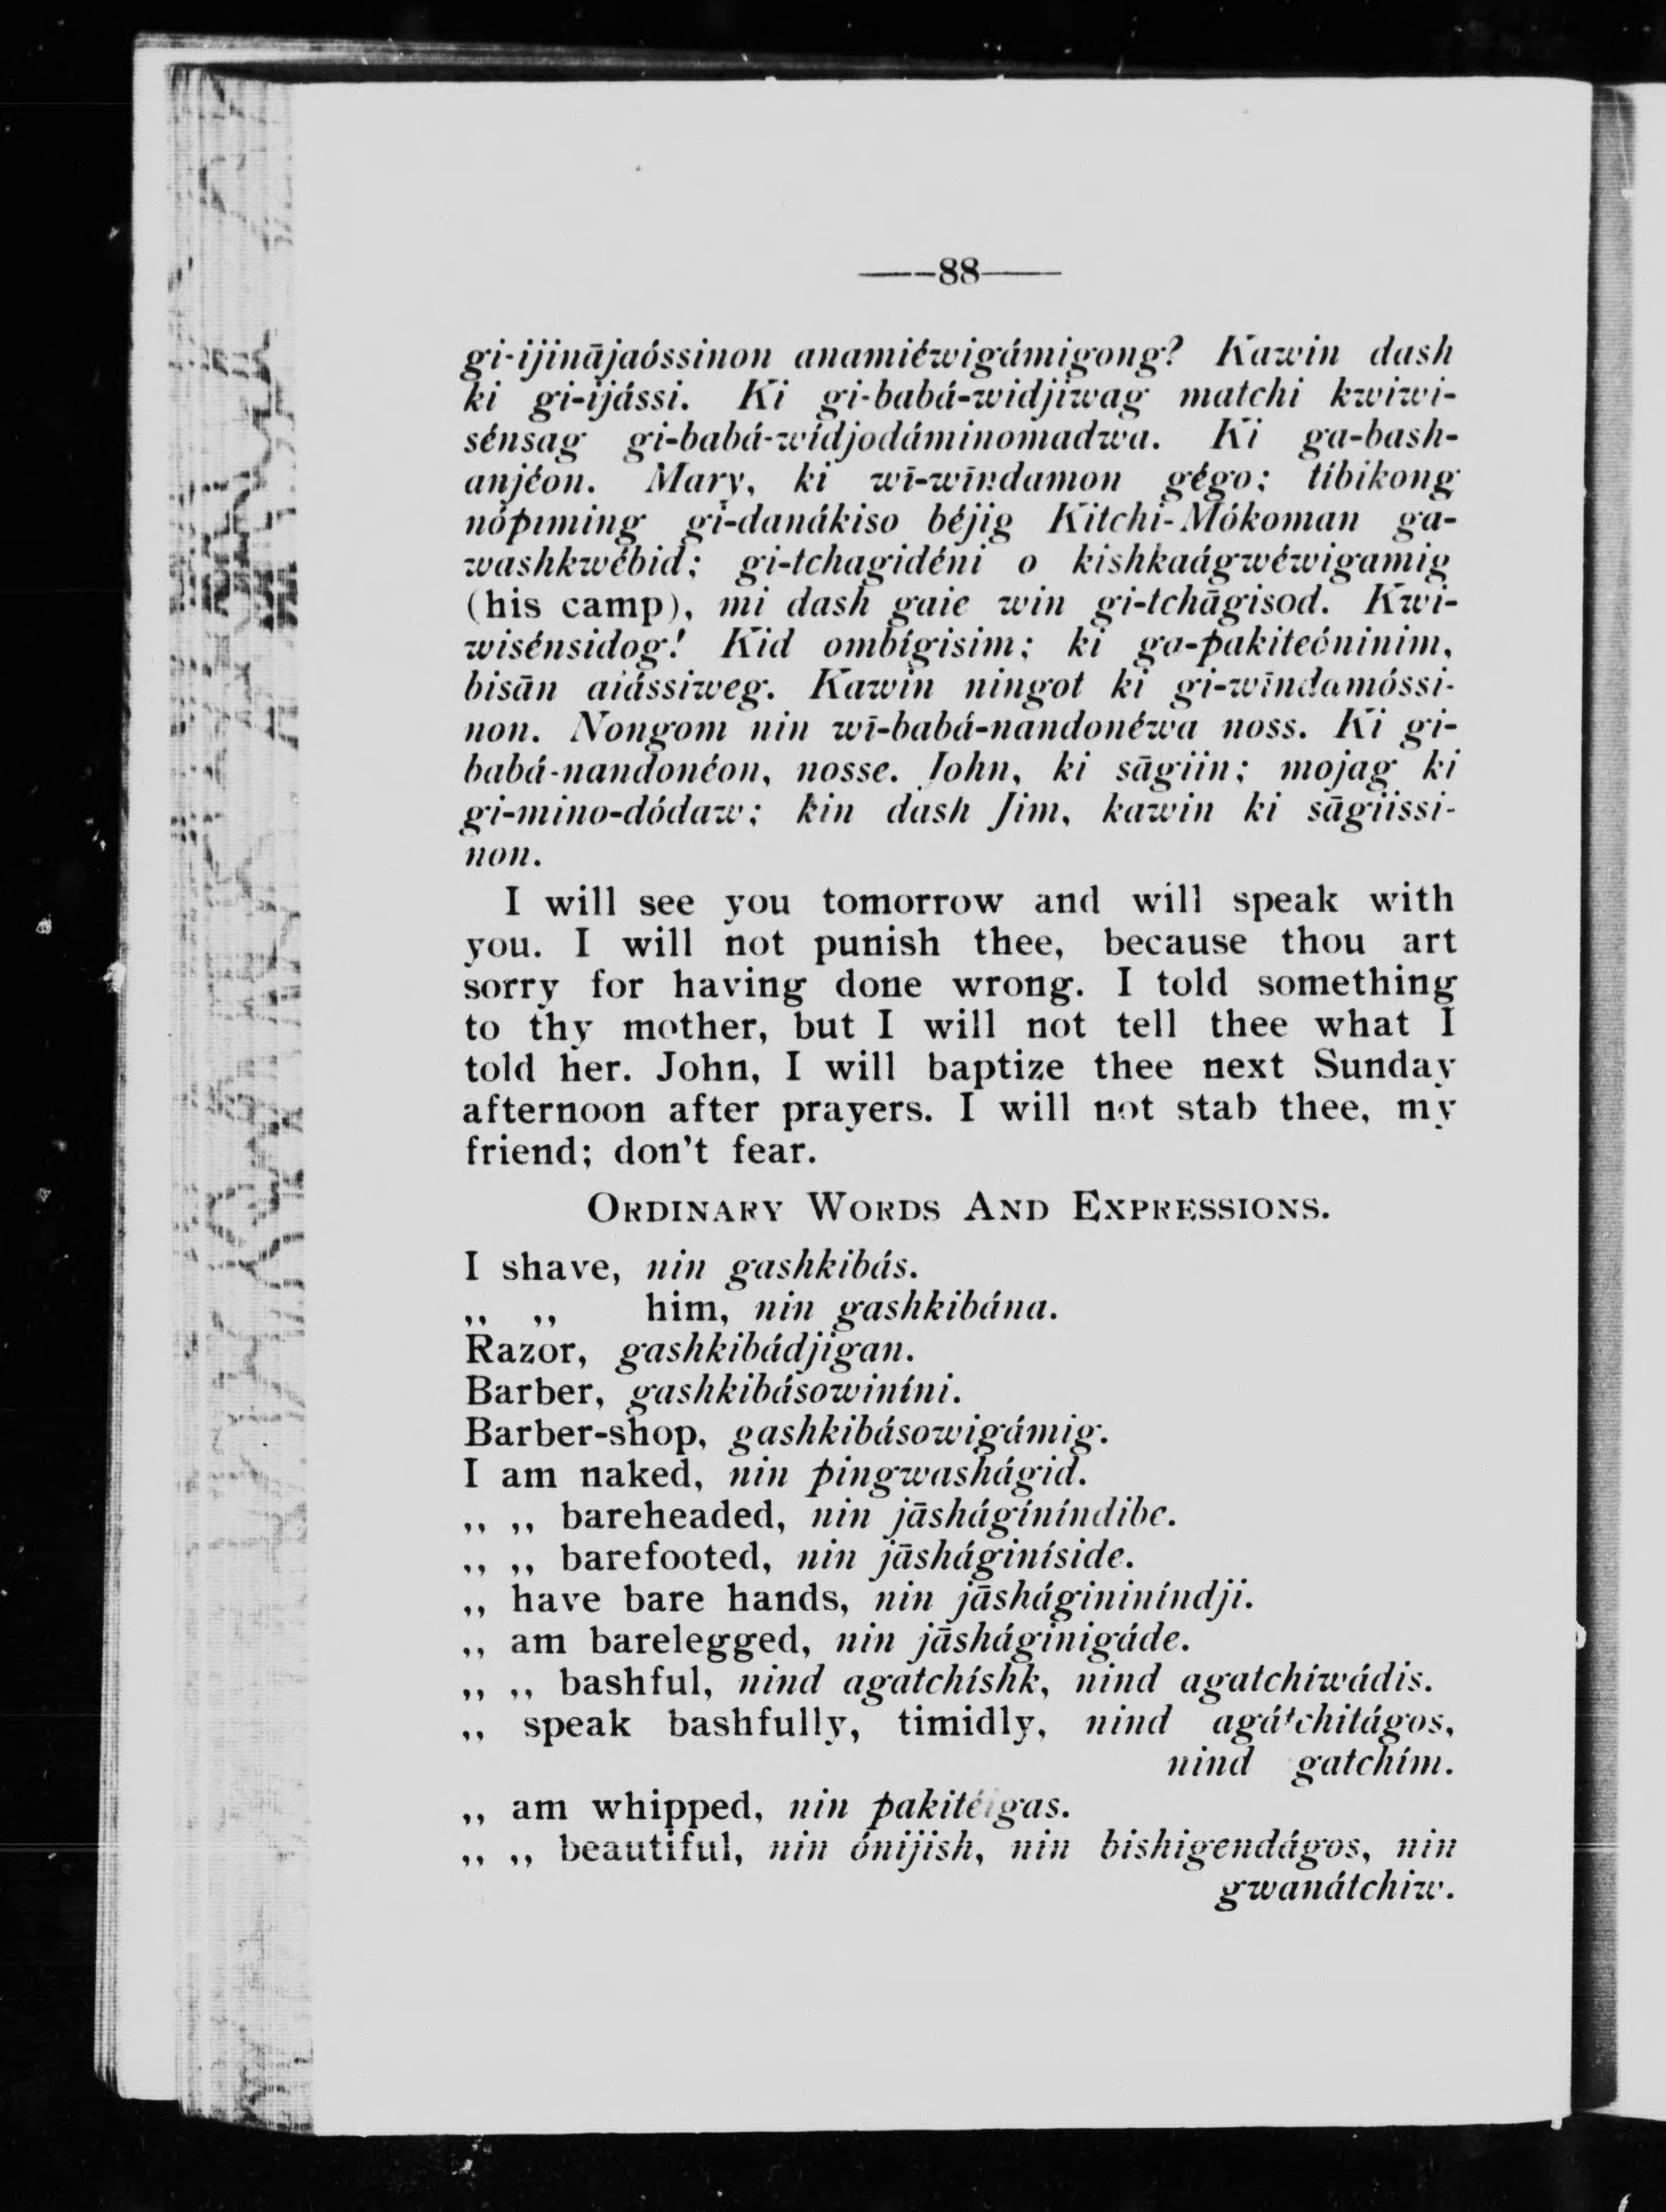 ——88——
gi-ijinājaóssinon anamiéwigámigong? Kawin dash
ki gi-ijássi. Ki gi-babá-widjiwag matchi kwiwi-
sénsag gi-babá-widjodáminomadwa. Ki ga-bash-
anjéon. Mary, ki wī-wīndamon gégo; tíbikong
nópiming gi-danákiso béjig Kitchi-Mókoman ga-
washkwébid; gi-tchagidéni o kishkaágwéwigamig
(his camp), mi dash gaie win gi-tchāgisod. Kwi-
wisénsidog! Kid ombígisim; ki ga-pakiteóninim,
bisān aiássiweg. Kawin ningot ki gi-wīndamóssi-
non. Nongom nin wī-babá-nandonéwa noss. Ki gi-
babá-nandonéon, nosse. John, ki sāgiin; mojag ki
gi-mino-dódaw; kin dash Jim, kawin ki sāgiissi-
non.
I will see you tomorrow and will speak with
you. I will not punish thee, because thou art
sorry for having done wrong. I told something
to thy mother, but I will not tell thee what I
told her. John, I will baptize thee next Sunday
afternoon after prayers. I will not stab thee, my
friend; don't fear.
Ordinary Words And Expressions.
I shave, nin gashkibás.
,, ,, him, nin gashkibána.
Razor, gashkibádjigan.
Barber, gashkibásowiníni.
Barber-shop, gashkibásowigámig.
I am naked, nin pingwashágid.
,, ,, bareheaded, nin jāsháginíndibe.
,, ,, barefooted, nin jāsháginíside.
,, have bare hands, nin jāshágininíndji.
,, am barelegged, nin jāsháginigáde.
,, ,, bashful, nind agatchíshk, nind agatchiwádis.
,, speak bashfully, timidly, nind agátchitágos,
nind gatchím.
,, am whipped, nin
,, ,, beautiful, nin ónijish, nin bishigendágos, nin
gwanátchiw.